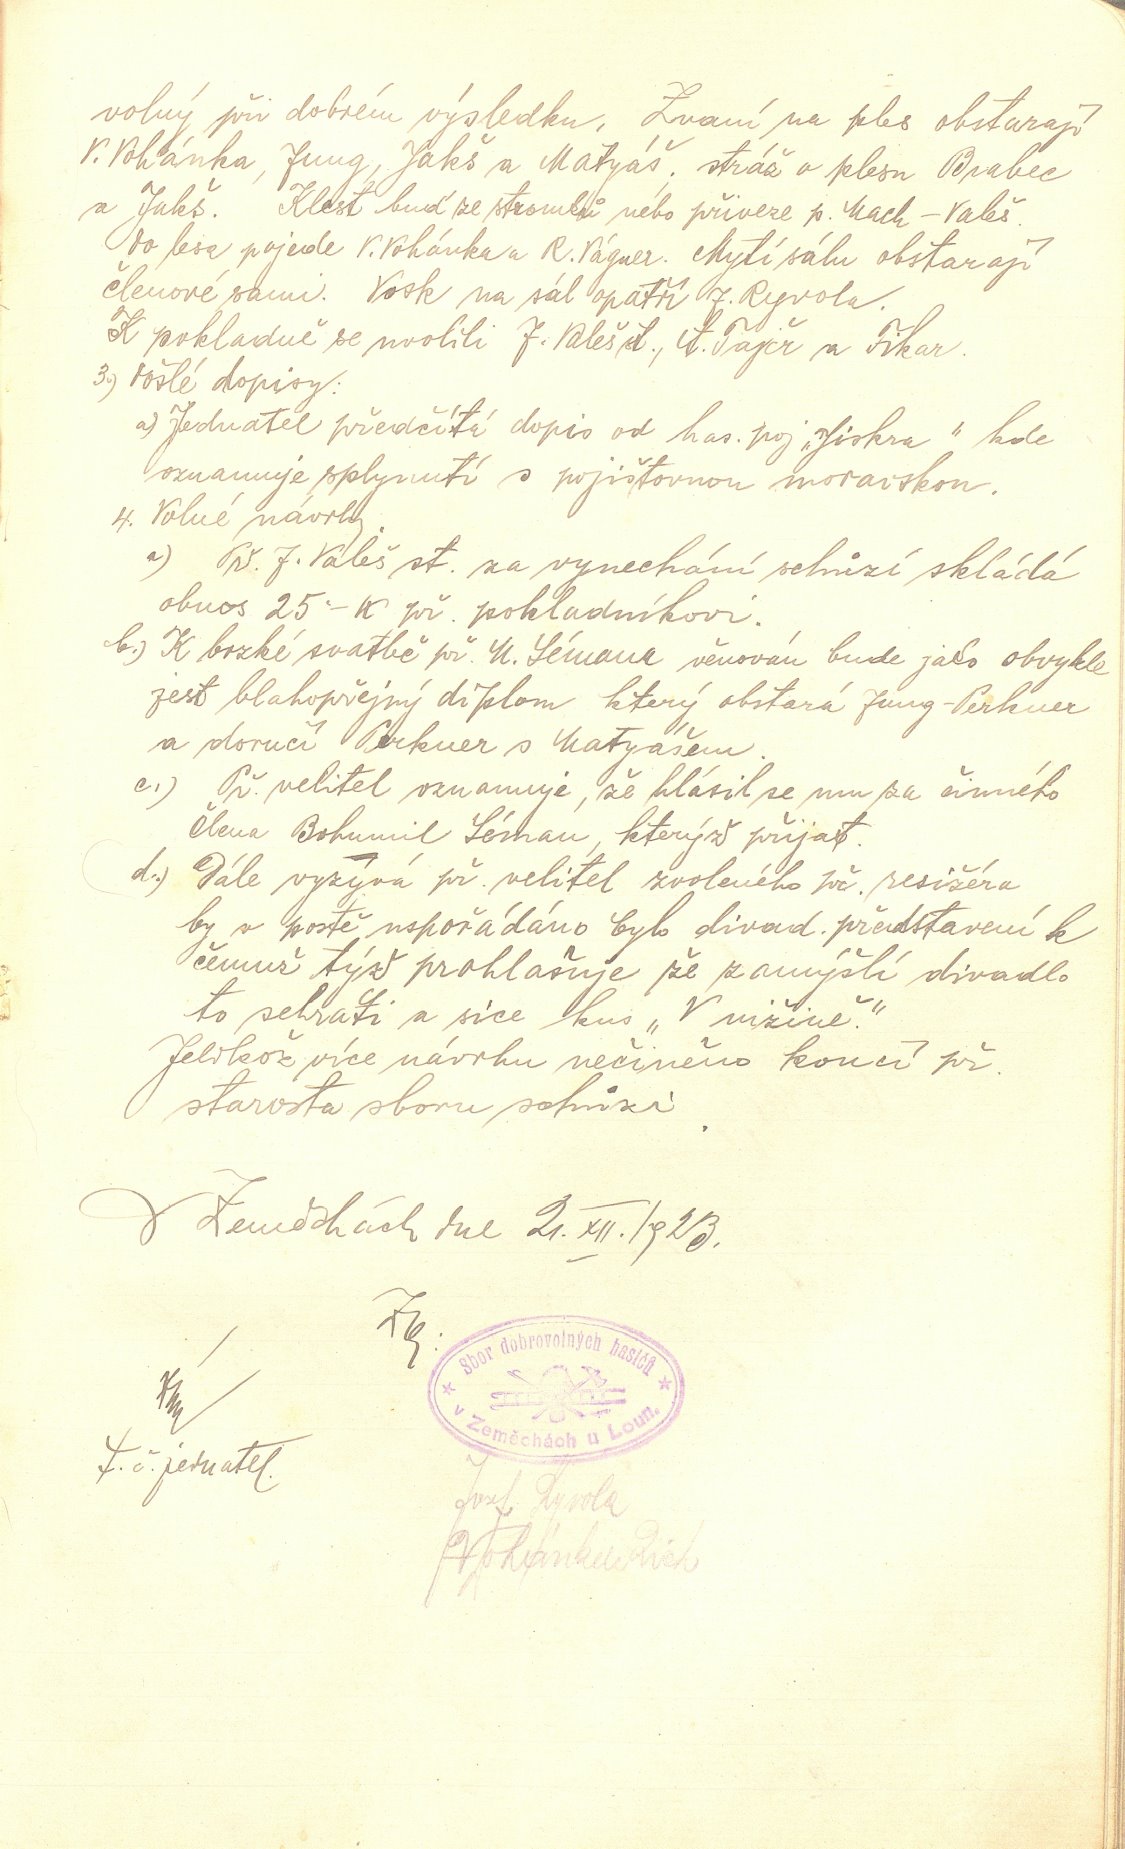 volný při dobrém výsledku. Zvaní na ples obstarají
V. Vohánka, Jung, Jakš a Matyáš. stráž o plesu Brabec
a Jakš. Klest buď ze stromků nebo přiveze p. Mach – Valeš.
Do lesa pojede V. Vohánka a R. Vágner. Mytí sálu obstarají
členové sami. Vosk na sál opatří J. Ryvola.
K pokladně se uvolili J. Valeš st., A. Tajčr a Fikar.
3.) Došlé dopisy:
a) Jednatel předčítá dopis od has. poj. „Jiskra" kde
oznamuje splynutí s pojišťovnou moravskou.
4. Volné návrhy.
a) Př. J. Valeš st. za vynechání schůzí skládá
obnos 25·– K př. pokladníkovi.
b.) K brzké svatbě př. A. Lémana věnován bude jako obvykle
jest blahopřejný diplom který obstará Jung – Perkner
a doručí Perkner s Matyášem.
c.) Př. velitel oznamuje, že hlásil se mu za činného
člena Bohumil Léman, kterýž přijat.
d.) Dále vyzývá př. velitel zvoleného př. resižéra
by v postě uspořádáno bylo divad. představení k
čemuž týž prohlašuje že zamýšlí divadlo
to sehrati a sice kus „V nížině."
Jelikož více návrhu nečiněno končí př.
starosta sboru schůzi.
V Zeměchách dne 21. XII. 1923.
Sbor dobrovolných hasičů
v Zeměchách u Loun.
t. č. jednatel.
Josef Ryvola
Vohánka